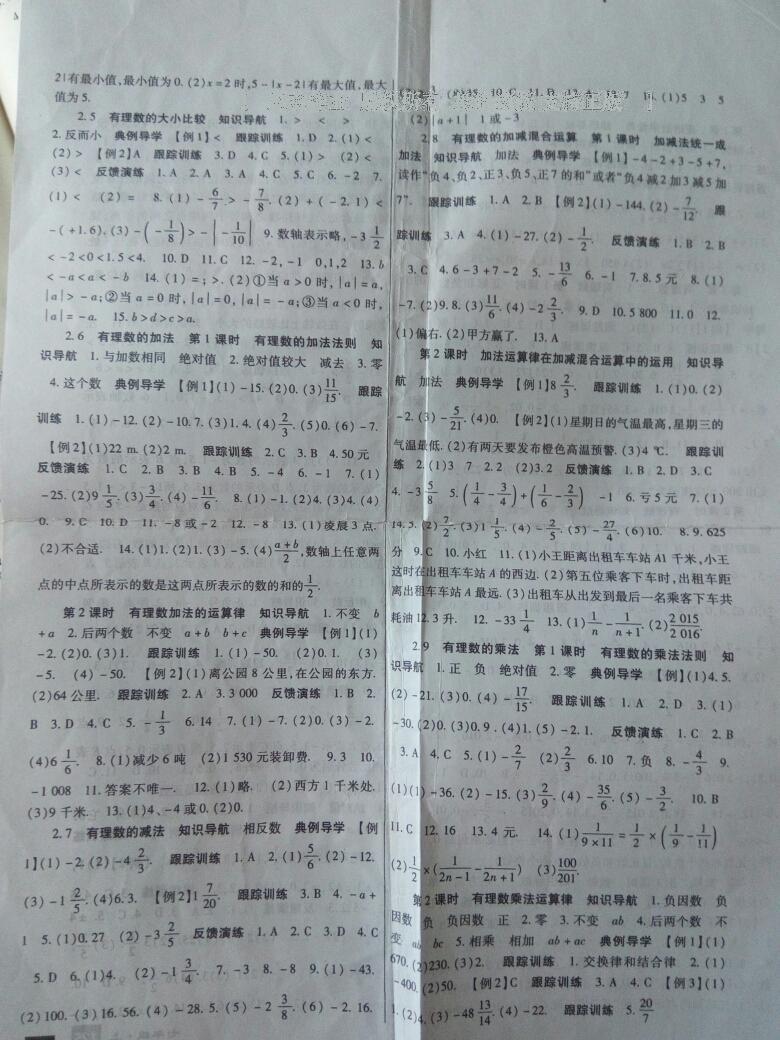 2|有最小值,最小值为0. (2)x=2时,5-|x-2|有最大值,最大
值为5.
2.5 有理数的大小比较 知识导航 1. > < >
2. 反而小 典例导学 【例1】< 跟踪训练 1. D 2. (1) <
(2) > 【例2】A 跟踪训练 3. D 4. C 5. (1) > (2) <
(3) < 反馈演练 1. A 2. A 3. A 4. C 5. C 6. -2 7.
(1) < (2) = 8. (1) -6/7 > -7/8. (2) +(-2.1) <
-(+1.6). (3) -(-1/8) > -|-1/10| 9. 数轴表示略, -3 1/2
< -2<0<1.5<4. 10. D 11. C 12. -2, -1 0,1,2 13. b
< -a<a< -b 14. (1) =; >. (2)①当a>0时, |a|=a,
|a|> -a;②当a=0时, |a|=0, |a|= -a;③当a<0时,
|a|= -a. 15. b>d>c>a.
2.6 有理数的加法 第1课时 有理数的加法法则 知
识导航 1. 与加数相同 绝对值 2. 绝对值较大 减去 3. 零
4. 这个数 典例导学 【例1】(1) -15. (2)0. (3)11/15. 跟踪
训练 1. (1) -12. (2) -10.7. (3)1.4. (4)2/3. (5)0. (6) -7.
【例2】(1)22 m. (2)2 m. 跟踪训练 2. C 3. B 4. 50元
反馈演练 1. C 2. B 3. B 4. B 5. -4 6. -1 7. (1)
-25. (2)9 1/5. (3)3/4. (4) -11/6. 8. (1) -1. (2)4. (3)4. (4)
0. 9. C 10. D 11. -8或-2 12. -8 13. (1)凌晨3点.
(2)不合适. 14. (1)1. (2)1. (3) -5. (4)(a+b)/2,数轴上任意两
点的中点所表示的数是这两点所表示的数的和的1/2.
第2课时 有理数加法的运算律 知识导航 1. 不变 b
+a 2. 后两个数 不变 a+b b+c 典例导学 【例1】(1)
-2. (2)0. (3)1. 跟踪训练 1. (1) -50. (2)0.1. (3)
-5. (4) -50. 【例2】(1)离公园8公里,在公园的东方.
(2)64公里. 跟踪训练 2. A 3. 3 000 反馈演练 1. B 2.
B 3. D 4. C 5. -1/3 6. 14 7. (1) -7. (2)0. (3) -2.
(4)6 1/6. 8. (1)减少6吨 (2)1 530元装卸费. 9. 3 10.
-1 008 11. 答案不唯一. 12. (1)略. (2)西方1千米处.
(3)9千米. 13. (1)4、-4或0. (2)0.
2.7 有理数的减法 知识导航 相反数 典例导学 【例
1】(1) -2. (2) -4 2/3. 跟踪训练 1. A 2. (1)5/6. (2) -12.
(3) -1 2/5. (4)6.3. 【例2】1 7/20. 跟踪训练 3. B 4. -a+
1 5. (1)0.27 (2) -3 2/5 反馈演练 1. A 2. C 3. D 4. C
5. D 6. (1)4. (2) -1 3/4. 7. -3 8. -8 9. (1) -43.
(2)100. (3)16.56. (4) -28.5. (5) -2 3/8. (6) -2.16.
(8)35. 10. C 11. D (1)5 3 5
(2)|a+1| 1或-3
2.8 有理数的加减混合运算 第1课时 加减法统一成
加法 知识导航 加法 典例导学 【例1】-4-2+3-5+7,
读作“负4、负2、正3、负5、正7的和”或者“负4减2加3减5加
7”. 跟踪训练 1. A 2. B 【例2】(1) -144. (2) -7/12. 跟
踪训练 3. A 4. (1) -27. (2) -1/2. 反馈演练 1. B 2. B
3. C 4. 6-3+7-2 5. -13/6 6. -1 7. 8.5元 8. (1)
-7. (2)9.8. (3)11/6. (4) -2 2/3. 9. D 10. 5 800 11. 0 12.
(1)偏右. (2)甲方赢了. 13. A
第2课时 加法运算律在加减混合运算中的运用 知识导
航 加法 典例导学 【例1】8 2/3. 跟踪训练 1. (1)0. (2)
-2. (3) -5/21. (4)0. 【例2】(1)星期日的气温最高,星期三的
气温最低. (2)有两天要发布橙色高温预警. (3)4 ℃. 跟踪训
练 2. (1)3 7 2.2 (2)3.2 反馈演练 1. B 2. D 3. C
4. -3 5/8 5. (1/4-3/4)+(1/6-2/3) -1 6. 亏5元 7. (1)
14.3. (2)7/2. (3)1 1/5. (4) -2/5. (5) -27/4. (6)10. 8. 9.625
分 9. C 10. 小红 11. (1)小王距离出租车车站A1千米,小王
这时在出租车车站A的西边. (2)第五位乘客下车时,出租车距
离出租车车站A最远. (3)出租车从出发到最后一名乘客下车共
耗油12.3升. 12. -33 1/4 13. (1)1/n-1/(n+1). (2)2 015/2 016.
2.9 有理数的乘法 第1课时 有理数的乘法法则 知
识导航 1. 正 负 绝对值 2. 零 典例导学 【例1】(1)4.5.
(2) -21. (3)0. (4) -17/15. 跟踪训练 1. A 2. D 3. (1)
-30. (2)0. (3)0.9. (4)1. (5) -2.1. 反馈演练 1. C 2. B
3. A 4. C 5. (1) -2/7 (2)2/3 6. 10 7. 负 8. -4/3 9.
(1)(1) -36. (2) -15. (3)2/9. (4) -35/6. (5) -3/2. 10. B
11. C 12. 16 13. 4元. 14. (1)1/(9×11)=1/2×(1/9-1/11)
(2)1/2×(1/(2n-1)-1/(2n+1)) (3)100/201.
第2课时 有理数乘法运算律 知识导航 1. 负因数 负
因数 负 负因数 正 2. 零 3. 不变 ab 4. 后两个数 不
变 ab bc 5. 相乘 相加 ab+ac 典例导学 【例1】(1)
670. (2)230. (3)2. 跟踪训练 1. 交换律和结合律 2. (1)
-400. (2)50. 【例2】C 跟踪训练 3. A 4. C 【例3】(1)
1. (2)4. (3) -48 13/14. (4) -22. 跟踪训练 5. 20/7